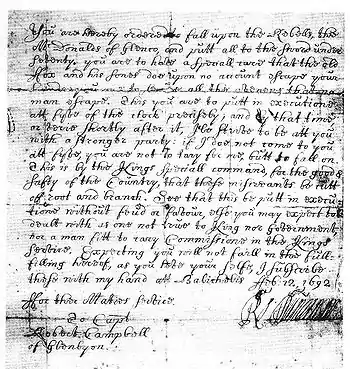 You are hereby ordered to fall upon the Rebells, the
McDonalds of Glenco, and putt all to the sword under
seventy. you are to have a speciall care that the old
Fox and his sones doe upon no account escape your
hands, you are to secure all the avenues that no
man escape. This you are to putt in execution
att fyve of the clock precisely; and by that time,
or very shortly after it, I'le strive to be att you
with a stronger party: if I doe not come to you
att fyve, you are not to tary for me, butt to fall on.
This is by the Kings speciall command, for the good &
safty of the Country, that these miscreants be cutt
off root and branch. See that this be putt in execu-
tione without feud or favour, else you may expect to be
dealt with as one not true to King nor Government,
nor a man fitt to cary Commissione in the Kings
service. Expecting you will not faill in the full-
filling hereof, as you love your selfe, I subscribe
these with my hand att Balicholis Feb: 12, 1692
For their Maties service
To Capt
Robert Campbell
of Glenlyon.